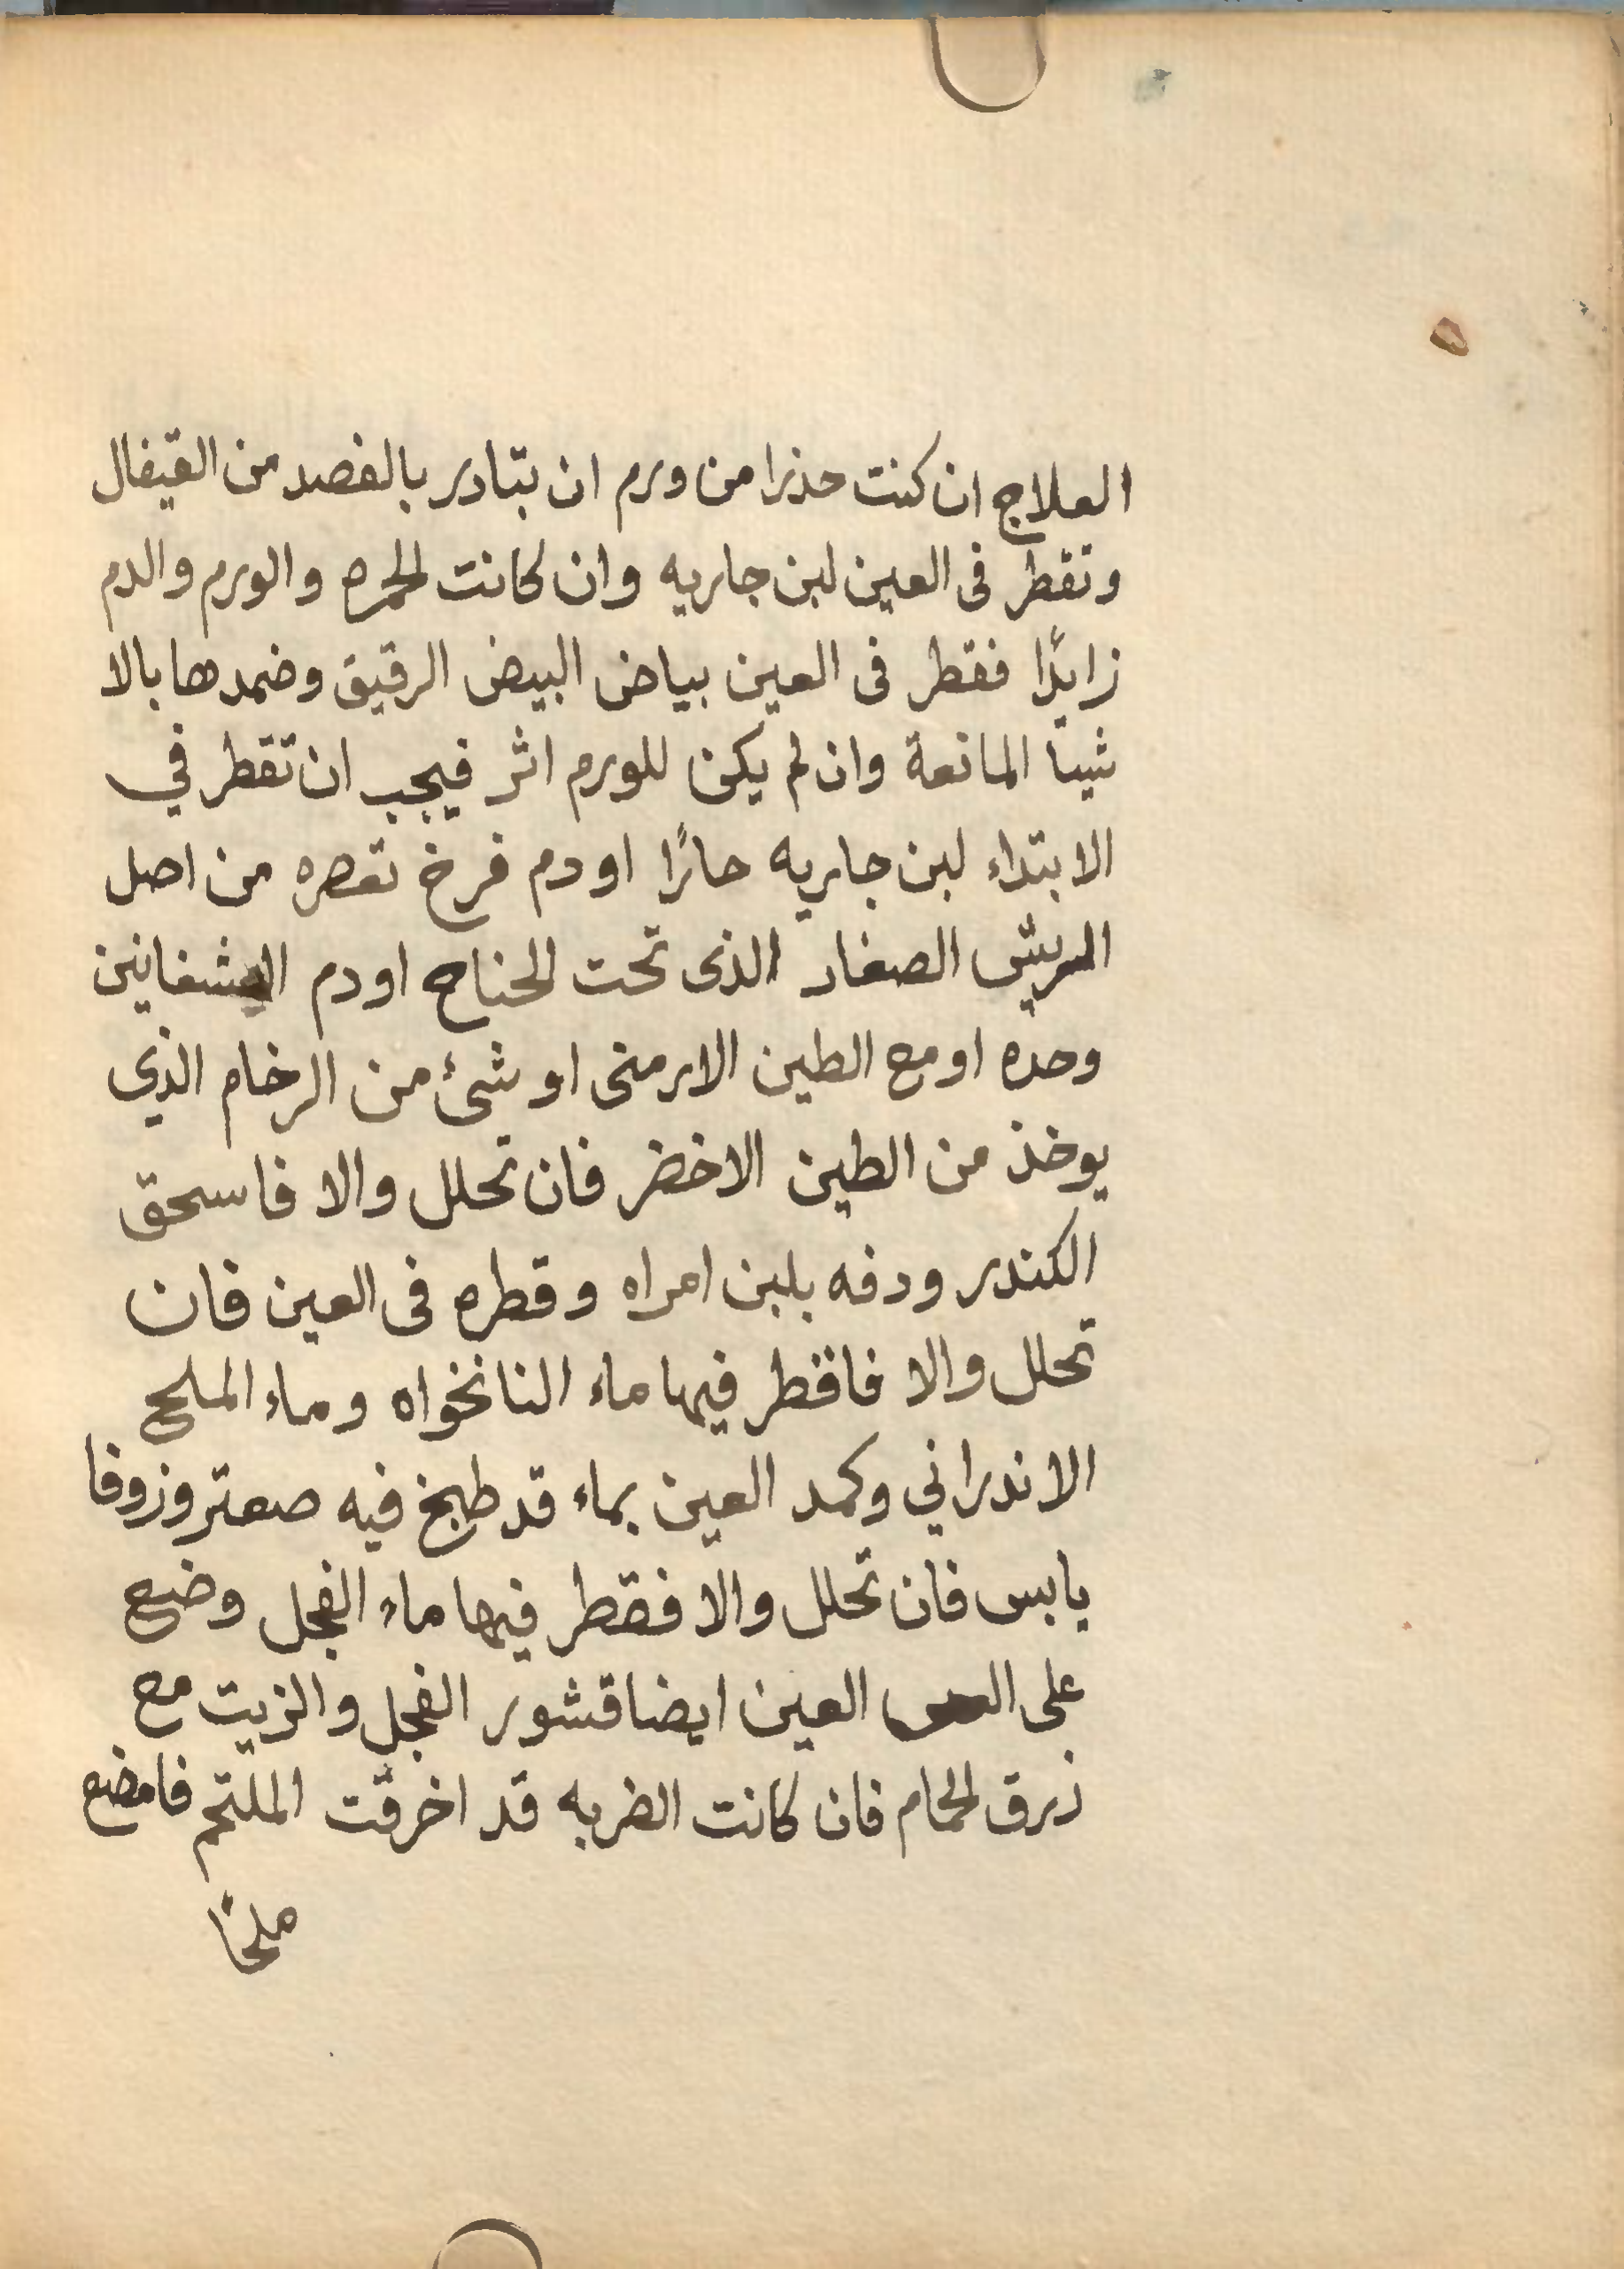 العلاج ان كنت حذرا من ورم ان بتادر بالفصد من القيفال
وتقطر فى العين لبن جاريه وان كانت الحمره والورم والدم
زايدًا فقطر فى العين بياض البيض الرقيق وضمدها بالا
شيبا المانعة وان لم يكن للورم اثر فيجب ان تقطر في
الابتداء لبن جاريه حارًا اودم فرخ تعصره من اصل
الريش الصغار الذى تحت الجناح اودم الشفانين
وحده اومع الطين الارمنى او شئ من الرخام الذي
يوخذ من الطين الاخضر فان تحلل والا فاسحق
الكندر ودفه بلبن امراه وقطره فى العين فان
تحلل والا فاقطر فيها ماء النانخواه وماء الملح
الاندراني وكمد العين بماء قد طبخ فيه صعتر وزوفا
يابس فان تحلل والا فقطر فيها ماء الفجل وضع
على العين ايضا قشور الفجل والزيت مع
زرق الحمام فان كانت الضربه قد اخرقت الملتحم فامضع
ملحًا